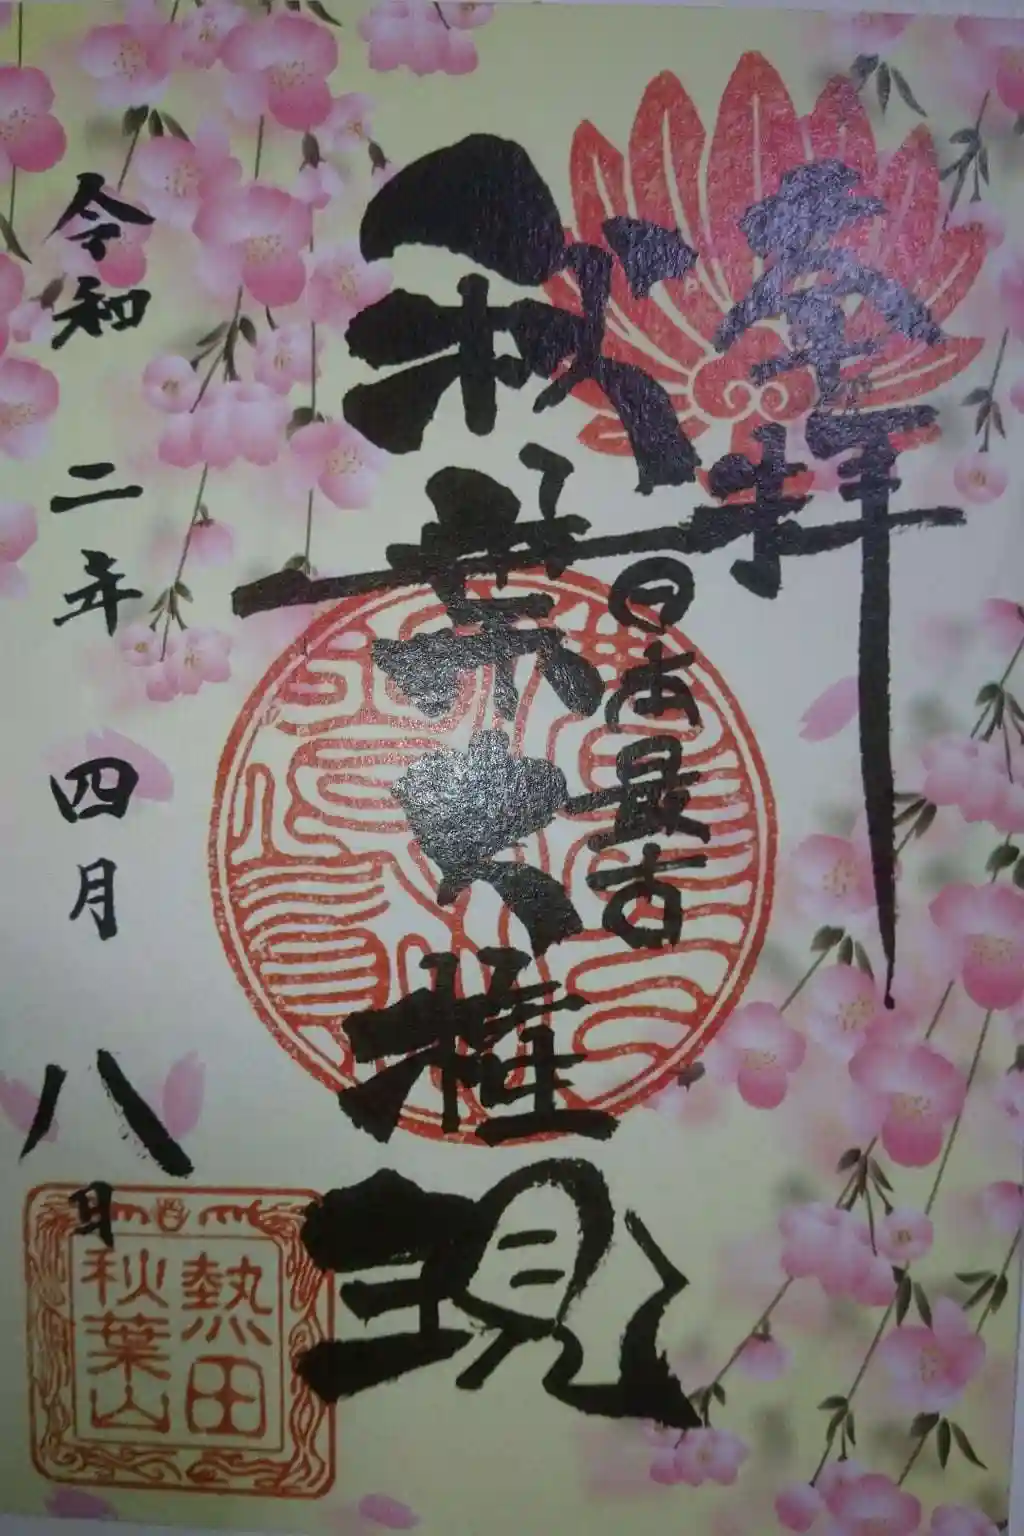 奉拝
日本最古
秋葉大権現
令和二年四月八日
熱田
秋葉山